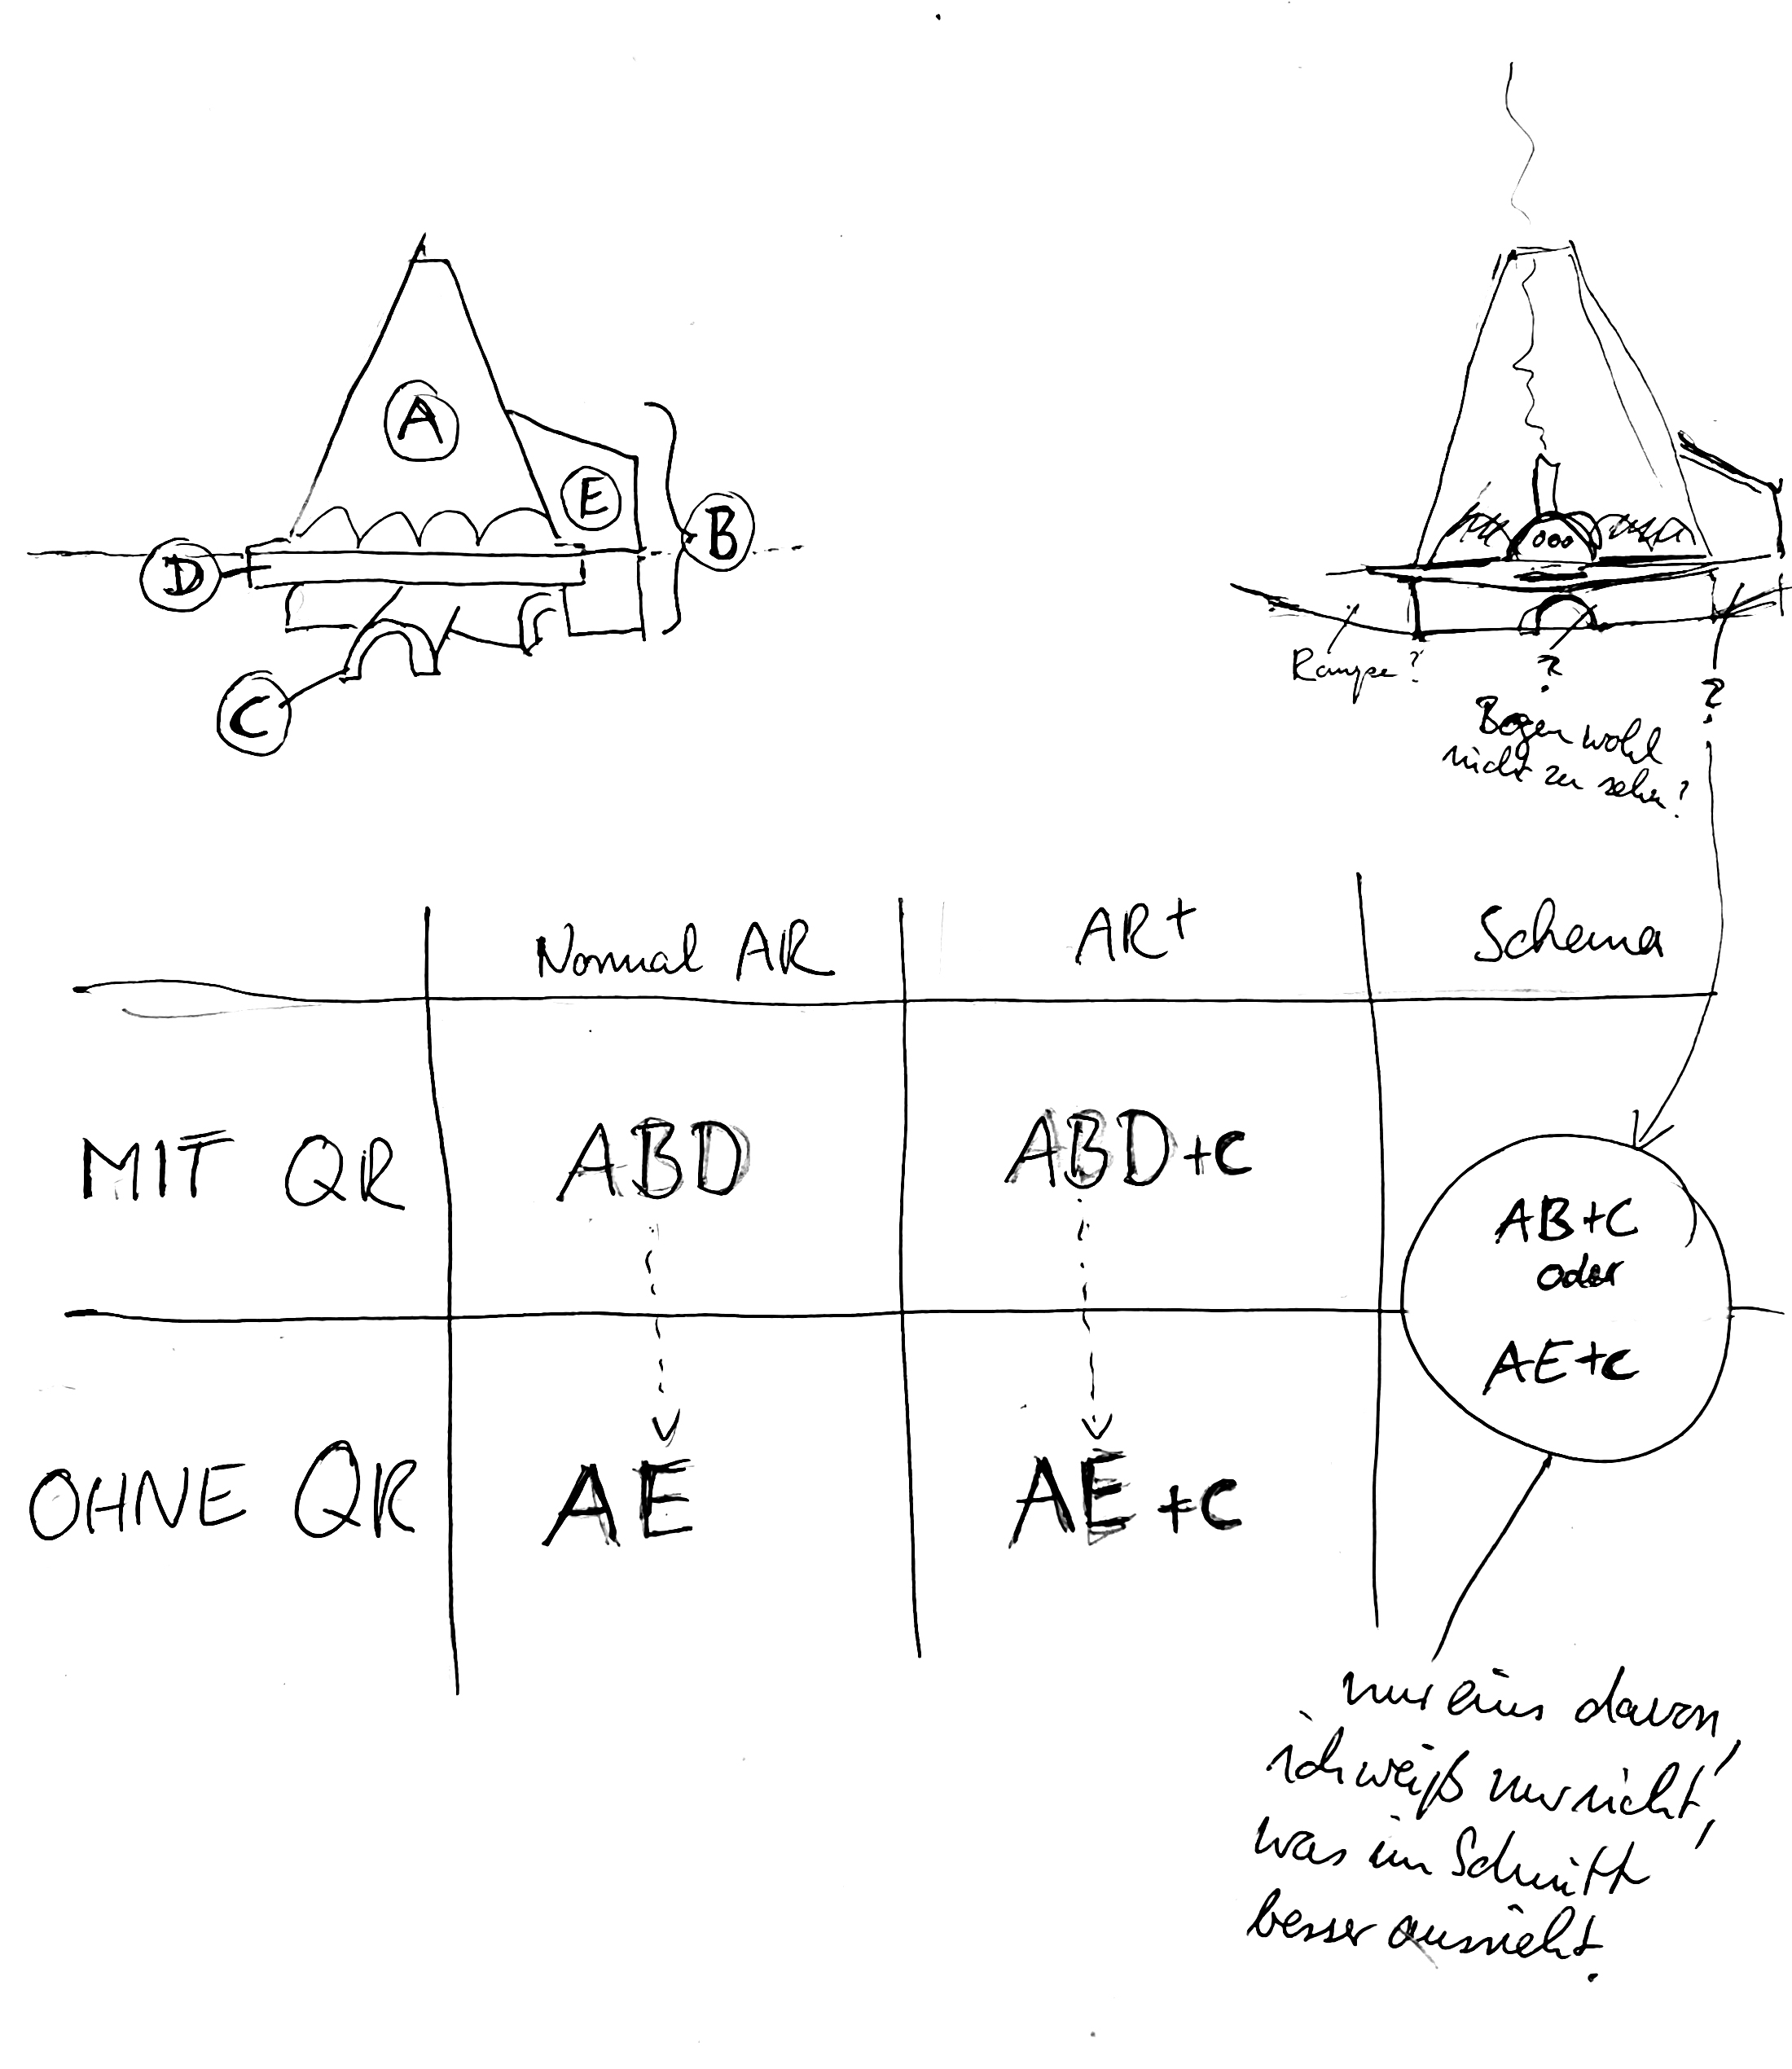 A
E
B
D
C
Rampe?
?
?
Bogen wohl
nicht zu sehen?
Normal AR
AR+
Schema
MIT QR
ABD
ABD+C
AB+C
oder
AE+C
OHNE QR
AE
AE+C
nur eins davon,
ich weiß nur nicht,
was im Schnitt
besser aussieht.